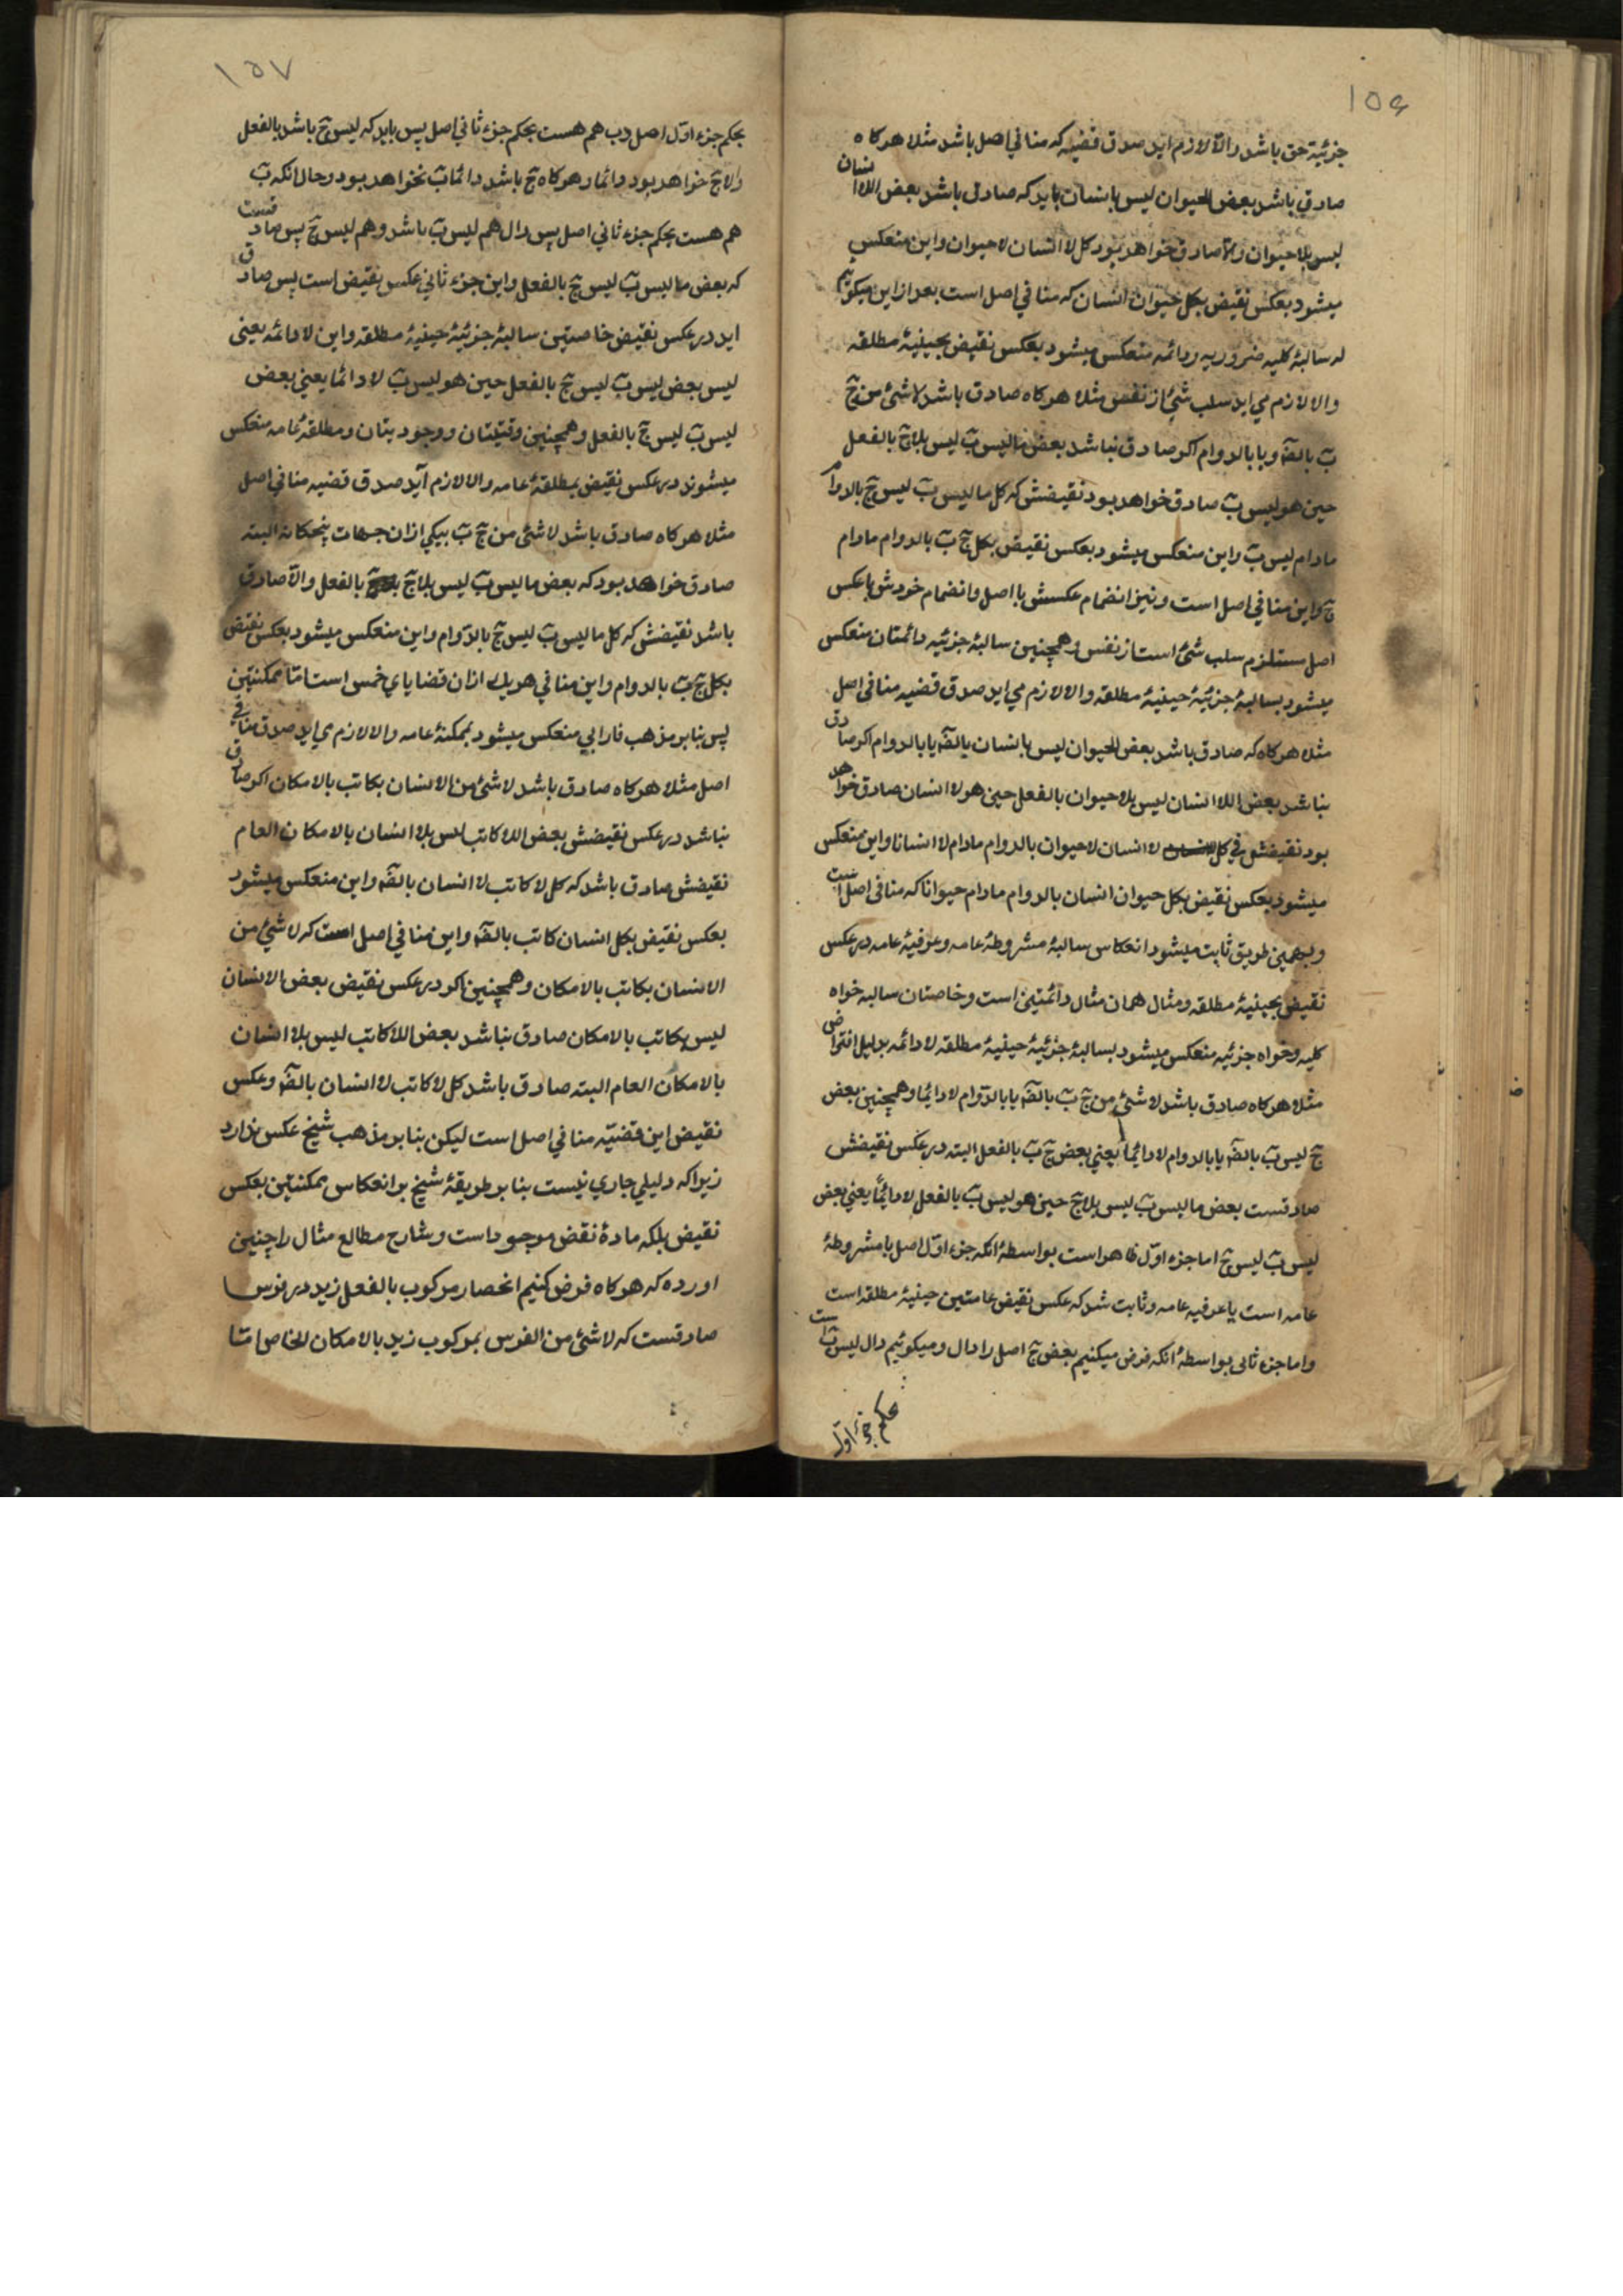 ١٥٦
جزئیة حق باشد والّا لازم اید صدق قضیه که منافی اصل باشد مثلا هرکاه
صادق باشد بعض الحیوان لیس بانسان باید که صادق باشد بعض اللاانسان
لیس بلاحیوان والّا صادق خواهد بود کل لاانسان لاحیوان واین منعکس
میشود بعکس نقیض بکل حیوان انسان که منافی اصل است بعد ازاین میکوئیم
که سالبهٔ کلیه ضروریه ودائمه منعکس میشود بعکس نقیض بحینیهٔ مطلقه
والا لازم می اید سلب شئ از نفس مثلا هرکاه صادق باشد لاشئ من جٓ
بٓ بالضّه ویا بالدوام اکر صادق نباشد بعض مالیس بٓ لیس بلاجٓ بالفعل
حین هو لیس بٓ صادق خواهد بود نقیضش که کل مالیس بٓ لیس جٓ بالدوام
مادام لیس بٓ واین منعکس میشود بعکس نقیض بکل جٓ بٓ بالدوام مادام
جٓ واین منافی اصل است ونیز انضمام عکسش با اصل وانضمام خودش باعکس
اصل مستلزم سلب شئ است از نفس وهمچنین سالبهٔ جزئیه دائمتان منعکس
میشود بسالبهٔ جزئیهٔ حینیهٔ مطلقه والا لازم می اید صدق قضیه منافی اصل
مثلا هرکاه که صادق باشد بعض الحیوان لیس بانسان بالضّه یا بالدوام اکر صادق
نباشد بعض اللاانسان لیس بلاحیوان بالفعل حین هو لاانسان صادق خواهد
بود نقیضش که کل لاانسان لاحیوان بالدوام مادام لاانسانا واین منعکس
میشود بعکس نقیض بکل حیوان انسان بالدوام مادام حیوانا که منافی اصل است
وبهمین طریق ثابت میشود انعکاس سالبهٔ مشروطهٔ عامه وعرفیهٔ عامه در عکس
نقیض بحینیهٔ مطلقه ومثال همان مثال دائمتین است وخاصتان سالبه خواه
کلیه وخواه جزئیه منعکس میشود بسالبهٔ جزئیهٔ حینیهٔ مطلقه لادائمه بدلیل افتراض
مثلا هرکاه صادق باشد لاشئ من جٓ بٓ بالضّه یا بالدّوام لادائما وهمچنین بعض
جٓ لیس بٓ بالضّه یا بالدوام لادائما یعنی بعض جٓ بٓ بالفعل البته در عکس نقیضش
صادقست بعض مالیس بٓ لیس بلاجٓ حین هو لیس بٓ بالفعل لادائمًا یعنی بعض
لیس بٓ لیس جٓ اما جزء اوّل ظاهر است بواسطهٔ انکه جزء اوّل اصل یا مشروطهٔ
عامه است یا عرفیه عامه وثابت شد که عکس نقیض عامتین حینیهٔ مطلقه است
واما جزء ثانی بواسطهٔ انکه فرض میکنیم بعض جٓ اصل را دال ومیکوئیم دال لیس بٓ است
بحکم جزء اوّل
١٥٧
بحکم جزء اوّل اصل وب هم هست بحکم جزء ثانی اصل پس باید که لیس جٓ باشد بالفعل
والا جٓ خواهد بود دائما وهرکاه جٓ باشد دائما بٓ نخواهد بود وحال انکه بٓ
هم هست بحکم جزء ثانی اصل پس دال هم لیس بٓ باشد وهم لیس جٓ پس صادقست
که بعض مالیس بٓ لیس جٓ بالفعل واین جزء ثانی عکس نقیض است پس صادق
اید در عکس نقیض خاصتین سالبهٔ جزئیهٔ حینیهٔ مطلقه واین لادائمه یعنی
لیس بعض لیس بٓ لیس جٓ بالفعل حین هو لیس بٓ لادائما یعنی بعض
لیس بٓ لیس جٓ بالفعل وهمچنین وقتیتان ووجودیتان ومطلقهٔ عامه منعکس
میشوند در عکس نقیض بمطلقهٔ عامه والا لازم آید صدق قضیه منافی اصل
مثلا هرکاه صادق باشد لاشئ من جٓ بٓ بیکی ازان جهات پنجکانه البته
صادق خواهد بود که بعض مالیس بٓ لیس بلاجٓ بالفعل والّا صادق
باشد نقیضش که کل مالیس بٓ لیس جٓ بالدّوام واین منعکس میشود بعکس نقیض
بکل جٓ بٓ بالدوام واین منافی هریک ازان قضایای خمس است امّا ممکنتین
پس بنابر مذهب فارابی منعکس میشود بممکنهٔ عامه والا لازم می اید صدق منافی
اصل مثلا هرکاه صادق باشد لاشئ من الانسان بکاتب بالامکان اکر صادق
نباشد در عکس نقیضش بعض اللاکاتب لیس بلاانسان بالامکان العام
نقیضش صادق باشد که کل لاکاتب لاانسان بالضّه واین منعکس میشود
بعکس نقیض بکل انسان کاتب بالضّه واین منافی اصل است که لاشئ من
الانسان بکاتب بالامکان وهمچنین اکر در عکس نقیض بعض الانسان
لیس بکاتب بالامکان صادق نباشد بعض اللاکاتب لیس بلاانسان
بالامکان العام البته صادق باشد کل لاکاتب لاانسان بالضّه وعکس
نقیض این قضیّه منافی اصل است لیکن بنابر مذهب شیخ عکس ندارد
زیراکه دلیلی جاری نیست بنابر طریقهٔ شیخ بر انعکاس ممکنتین بعکس
نقیض بلکه مادهٔ نقض موجود است وشارح مطالع مثال را چنین
اورده که هرکاه فرض کنیم انحصار مرکوب بالفعل زید در فرس
صادقست که لاشئ من الفرس بمرکوب زید بالامکان الخاص امّا